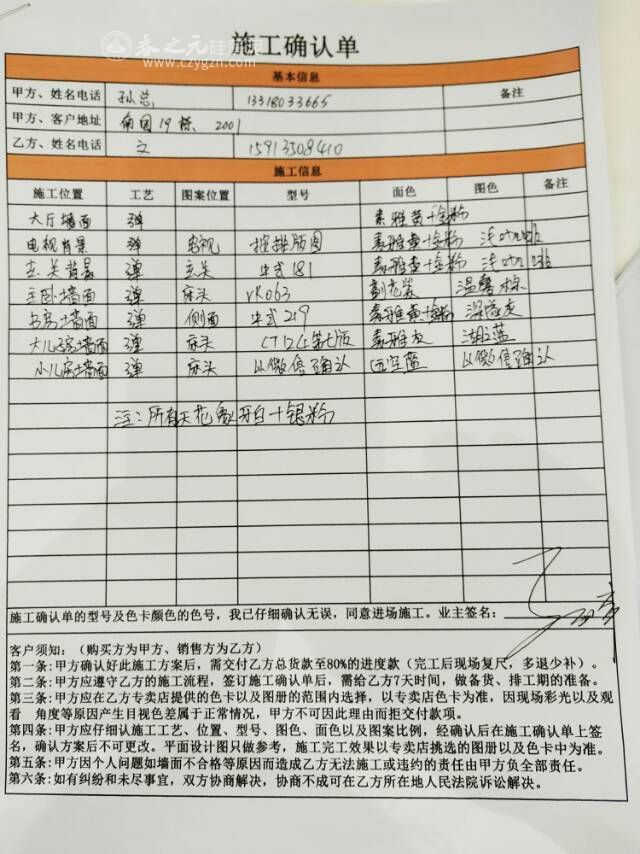 春之元硅藻泥
www.czygzn.com
施工确认单
基本信息
甲方、姓名电话 孙总 13318033665 备注
甲方、客户地址 19栋 2001
乙方、姓名电话 文 15913508410
施工信息
施工位置 工艺 图案位置 型号 面色 图色 备注
大厅墙面 弹 素雅黄+金粉
电视背景 弹 电视 按排版图 素雅黄+金粉 浅咖啡
玄关背景 弹 玄关 中式181 素雅黄+金粉 浅咖啡
主卧墙面 弹 床头 YR063 温馨棕
书房墙面 弹 侧面 中式219 素雅黄+金粉 深 灰
大儿子房墙面 弹 床头 CT124第七版 素雅灰 湖蓝
小儿房墙面 弹 床头 以微信确认 蓝 以微信确认
注：所有天花象牙白+银粉
施工确认单的型号及色卡颜色的色号，我已仔细确认无误，同意进场施工。业主签名：
客户须知：（购买方为甲方、销售方为乙方）
第一条：甲方确认好此施工方案后，需交付乙方总货款至80%的进度款（完工后现场复尺，多退少补）。
第二条：甲方应遵守乙方的施工流程，签订施工确认单后，需给乙方7天时间，做备货、排工期的准备。
第三条：甲方应在乙方专卖店提供的色卡以及图册的范围内选择，以专卖店色卡为准，因现场彩光以及观
看 角度等原因产生目视色差属于正常情况，甲方不可因此理由而拒交付款项。
第四条：甲方应仔细确认施工工艺、位置、型号、图色、面色以及图案比例，经确认后在施工确认单上签
名，确认方案后不可更改。平面设计图只做参考，施工完工效果以专卖店挑选的图册以及色卡中为准。
第五条：甲方因个人问题如墙面不合格等原因而造成乙方无法施工或违约的责任由甲方负全部责任。
第六条：如有纠纷和未尽事宜，双方协商解决，协商不成可在乙方所在地人民法院诉讼解决。